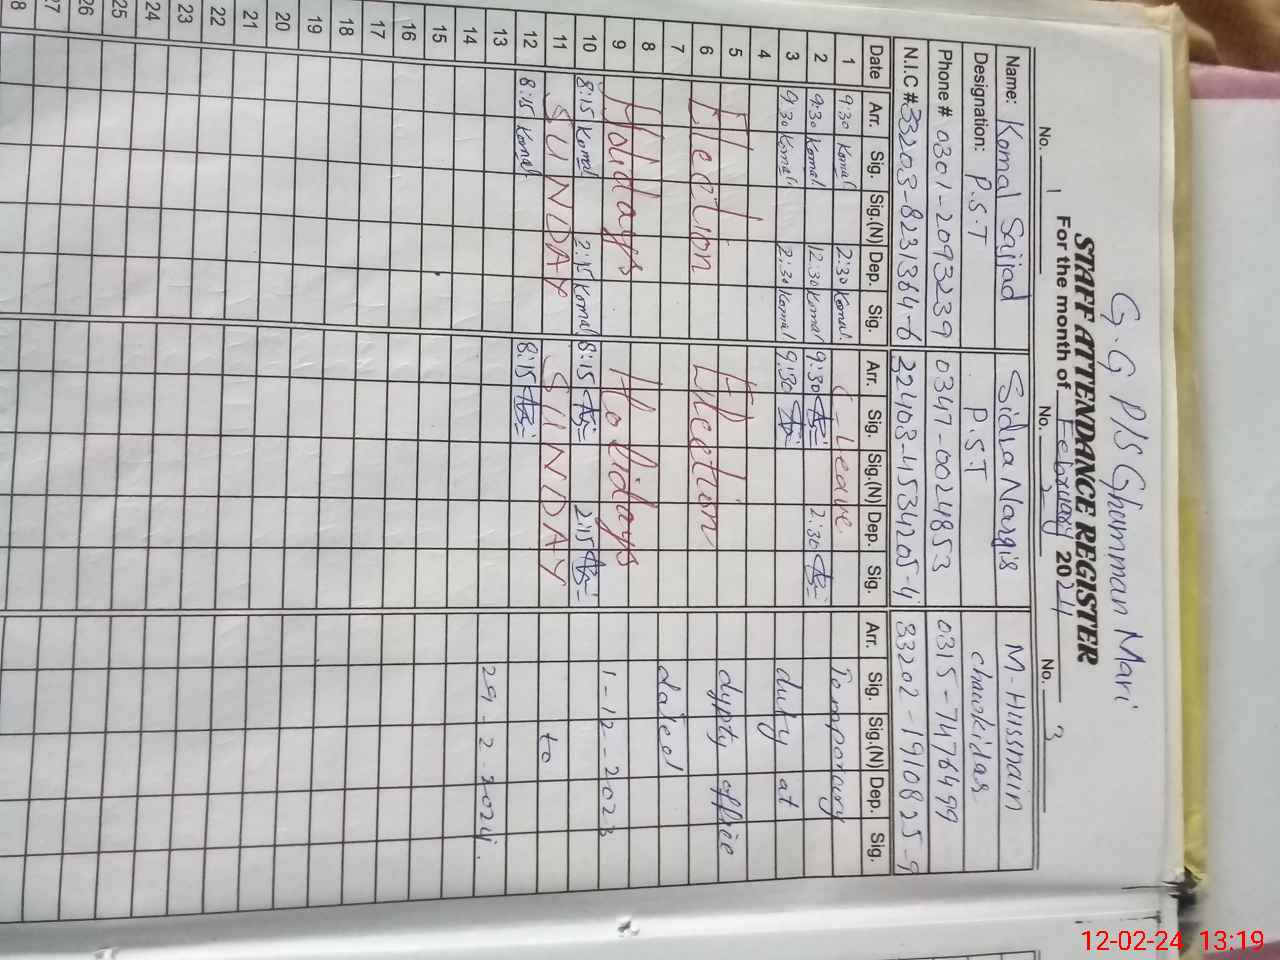 G.G P/S Ghumman Mari
STAFF ATTENDANCE REGISTER
For the month of February 2024
No. 1 No. 2 No. 3
Name: Komal Sajjad Sidra Nargis M-Hussnain
Designation: P.S.T P.S.T chawkidar
Phone # 0301-2093239 0347-0024853 0315-7476499
N.I.C # 33203-8231364-6 32403-4534205-4 33202-1910825-9
Date Arr. Sig. Sig.(N) Dep. Sig. Arr. Sig. Sig.(N) Dep. Sig. Arr. Sig. Sig.(N) Dep. Sig.
1 9:30 Komal 2:30 Komal Leave Temporary
2 9:30 Komal 12:30 Komal 9:30 2:30
3 9:30 Komal 2:30 Komal 9:30 duty at
4
5 dypty office
6 Election Election
7 dated
8
9 Holidays Holidays 1-12-2023
10 8:15 Komal 2:15 Komal 8:15 2:15
11 SUNDAY SUNDAY to
12 8:15 Komal 8:15
13 29-2-2024.
14
15
16
17
18
19
20
21
22
23
24
25
26
27
8
12-02-24 13:19